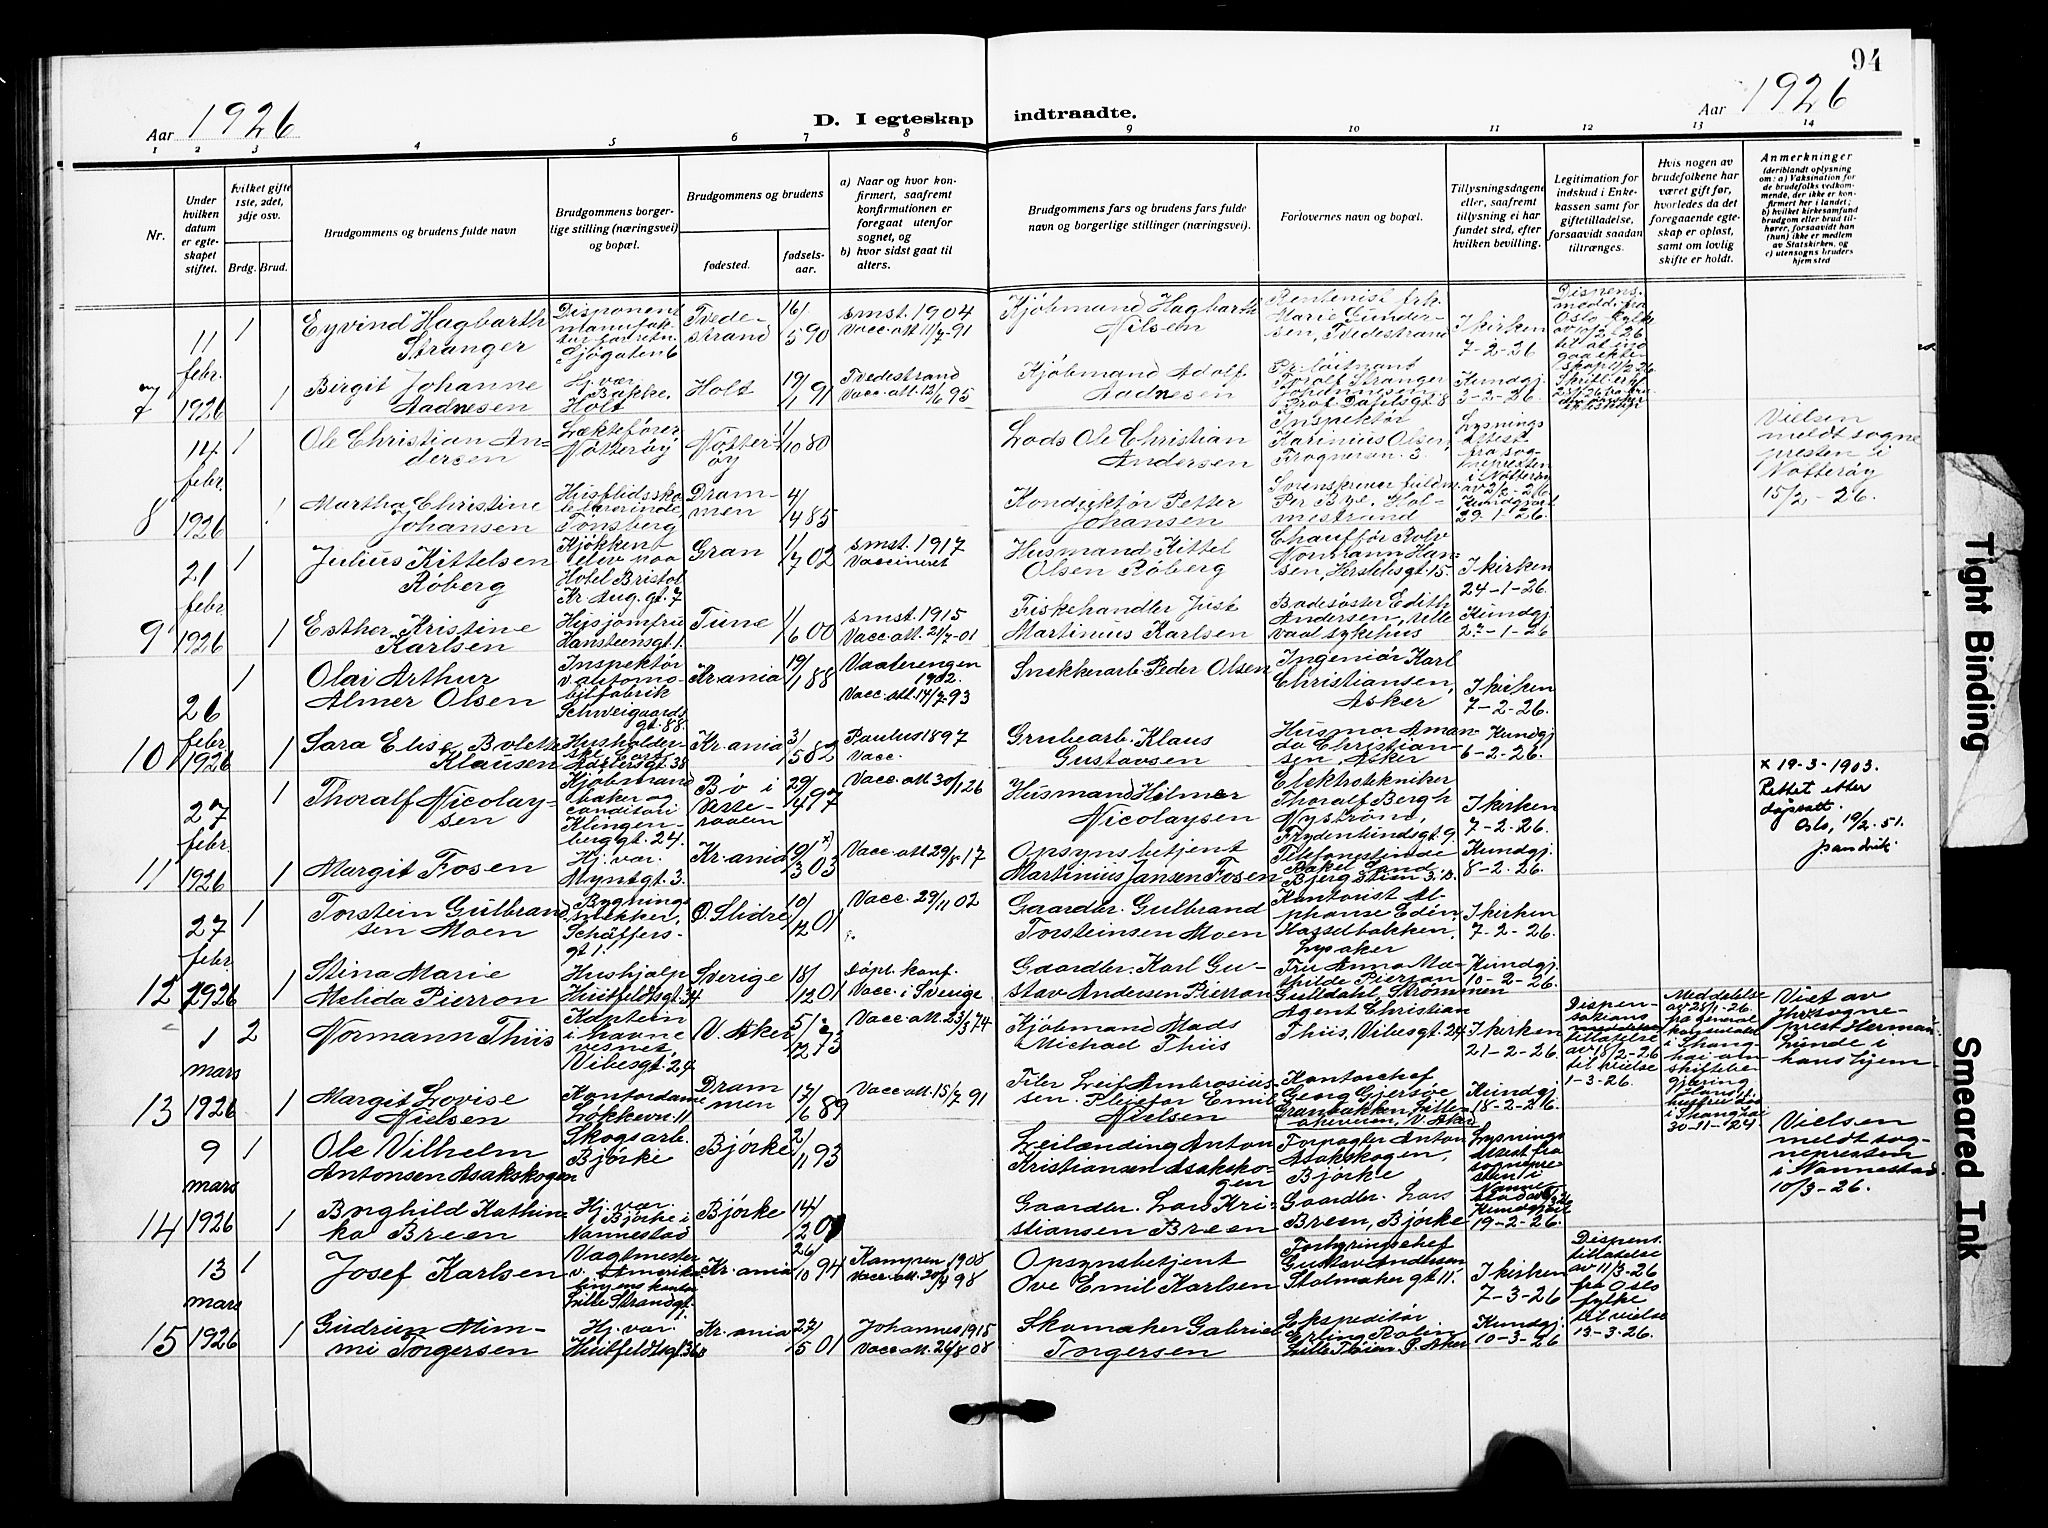 94
Aar 1926
D. I egteskap
indtraadte.
Aar 1926
1 2 3 4 5 6 7 8 9 10 11 12 13 14
Nr.
Under hvilken datum er egteskapet stiftet.
hvilket gifte 1ste, 2det, 3dje osv.
Brdg. Brud.
Brudgommens og brudens fulde navn
Brudgommens borgerlige stilling (næringsvei) og bopæl.
Brudgommens og brudens
fødested.
fødselsaar.
a) Naar og hvor konfirmert, saafremt konfirmationen er foregaat utenfor sognet, og
b) hvor sidst gaat til alters.
Brudgommens fars og brudens fars fulde navn og borgerlige stillinger (næringsvei).
Forlovernes navn og bopæl.
Tillysningsdagene eller, saafremt tillysning ei har fundet sted, efter hvilken bevilling.
Legitimation for indskud i Enkekassen samt for giftetilladelse, forsaavidt saadan tiltrænges.
Hvis nogen av brudefolkene har været gift før, hvorledes da det foregaaende egteskap er opløst, samt om lovlig skifte er holdt.
Anmerkninger (deriblandt oplysning om: a) Vaksination for de brudefolks vedkommende, der ikke er konfirmert her i landet; b) hvilket kirkesamfund brudgom eller brud tilhører, forsaavidt han (hun) ikke er medlem av Statskirken, og c) utensogns bruders hjemsted
7
11 febr. 1926
1
Eyvind Hagbarth Stranger
Disponent
Sjøgaten 6
Tvedestrand
16/5 90
smst. 1904
Vacc. att. 11/7-91
Kjøbmand Hagbarth Nilsen
Rentenist frk. Marie Gundersen, Tvedestrand
I kirken 7-2-26
1
Birgit Johanne Aadnesen
Hj. vær. Bakke, Holt
Holt
19/1 91
Tvedestrand
Vacc. att. 12/6 95
Kjøbmand Adolf Aadnesen
Kundgj. 3-2-26.
8
14 febr. 1926
1
Ole Christian Andersen
Lektefører Nøtterøy
Nøtterøy
1/10 80
Lods Ole Christian Andersen
Inspektør Karinius Olsen, Frognerv. 3.
Lysningsattest fra sognepresten i Nøtterøy av 2/2-26.
Vielsen meldt sognepresten i Nøtterøy 15/2-26.
1
Martha Christine Johansen
Tønsberg
Drammen
4/4 85
Konduktør Petter Johansen
Per Bye, Holmestrand
Kundgjort 29-1-26.
9
21 febr. 1926
1
Julius Kittelsen Røberg
Kjøkkenelev paa Hotel Bristol Kr. Aug. gt. 7
Gran
1/7 02
smst. 1917
Vaccineret
Husmand Kittel Olsen Røberg
Chauffør Rolv Normann Hansen, Herslebsgt. 15.
I kirken 24-1-26.
1
Esther Kristine Karlsen
Husjomfru Hansteensgt. 1.
Tune
1/6 00
smst. 1915
Vacc. att. 21/7-01
Fiskehandler Just Martinius Karlsen
Badesøster Edith Andersen, Ullevaal sykehus
Kundgj. 2?-1-26
10
26 febr. 1926
1
Olai Arthur Almer Olsen
Inspektør v. automobilfabrik Schweigaardsgt. 88.
Kr.ania
19/1 88
Vaalerengen 1902.
Vacc. att. 14/7-93
Snekkerarb. Peder Olsen
Ingeniør Karl Christiansen, Asker
I kirken 7-2-26.
1
Sara Elise Bolette Klausen
Kr.ania
3/5 82
Paulus 1897
Vacc.
Grubearb. Klaus Gustavsen
Husmor Amanda Christiansen, Asker
Kundgj. 6-2-26.
11
27 febr. 1926
1
Thoralf Nicolaysen
Kjøbmand baker og conditori Klingenberggt. 24.
Bø i Vesteraalen
29/4 97
Vacc. att. 30/1 26
Husmand Hilmer Nicolaysen
Elektrotekniker Thoralf Bergh Nystrøm, Frydenlundsgt. 9.
I kirken 7-2-26.
x 19-3-1903. Rettet etter dåpsatt. Oslo, 19/2.51.
1
Margit Fosen
Hj. vær. Myntgt. 3.
Kr.ania
19/3 03 x)
Vacc. att. 29/8 17
Opsynsbetjent Martinius Jansen Fosen
Kundgj. 8-2-26.
12
27 febr. 1926
1
Torstein Gulbrandsen Moen
Bygningssnekker, Schäffersgt. 1.
Ø. Slidre
10/12 01
Vacc. 29/11 02
Gaardbr. Gulbrand Torsteinsen Moen
Kontorist Alphonse Edén, Hasselbakken, Lysaker
I kirken 7-2-26.
1
Stina Marie Melida Pierron
Hushjælp Huitfeldtsgt. 34
Sverige
18/12 01
døpt. konf. Vacc. i Sverige
Gaardbr. Karl Gustav Andersen Pierron
Fru Anna Mathilde Pierron Guldahl, Strømmen
Kundgj. 10-2-26.
13
1 mars 1926
2
Normann Thiis
Kaptein i havnevesnet Vibesgt. 24
V. Aker
5/12 73
Vacc. att. 23/3 74
Kjøbmand Mads Michael Thiis
Agent Christian Thiis, Vibesgt. 24
I kirken 21-2-26.
Dispensations tillatelse av 18/2-26 til vielse 1-3-26.
Meddelelse av 28/1-26 fra generalkonsulatet i Shanghai om skiftebegjæring
i Shanghai 30-11-124
Viet av hjelpesogneprest Herman Lunde i hans hjem
1
Margit Lovise Nielsen
Kontordame Løkkevn. 11
Drammen
17/6 89
Vacc. att. 15/7 91
Kontorchef Georg Gjersøe
Kundgj. 18-2-26.
14
9 mars 1926
1
Ole Vilhelm Antonsen Asakskogen
Skogsarb. Bjørke
Bjørke
2/1 93
Leilænding Anton Kristiansen Asakskogen
Forpagter Anton Asakskogen, Bjørke
Lysningsattest fra sognepresten i Nannestad
Vielsen meldt sognepresten i Nannestad 10/3-26.
1
Borghild Kathinka Breen
Hj. vær. Bjørke i Nannestad
Bjørke
14/2 01
Gaardbr. Lars Kristiansen Breen
Gaardbr. Lars Breen, Bjørke
Kundgjort 19-2-26.
15
13 mars 1926
1
Josef Karlsen
Vagtmester v. Amerikalinjens kontor Lille Strandgt. 1
Kr.ania
26/10 94
Kampen 1908
Vacc. att. 20/4 98
Opsynsbetjent Ove Emil Karlsen
Forhyringschef Gustav Andersen Stolmakergt 11.
I kirken 7-3-26
Dispens. tillatelse av 11/3-26 fra Oslo fylke til vielse 13-3-26.
1
Gudrun Mimmi Torgersen
Hj. vær. Huitfeldtsgt.
Kr.ania
27/5 01
Johannes 1915
Vacc. att. 26/8 08
Skomaker Gabriel Torgersen
Ekspeditør Erling Rolin Lille Frøen V. Aker
Kundgj. 10-3-26
Tight Binding
Smeared Ink